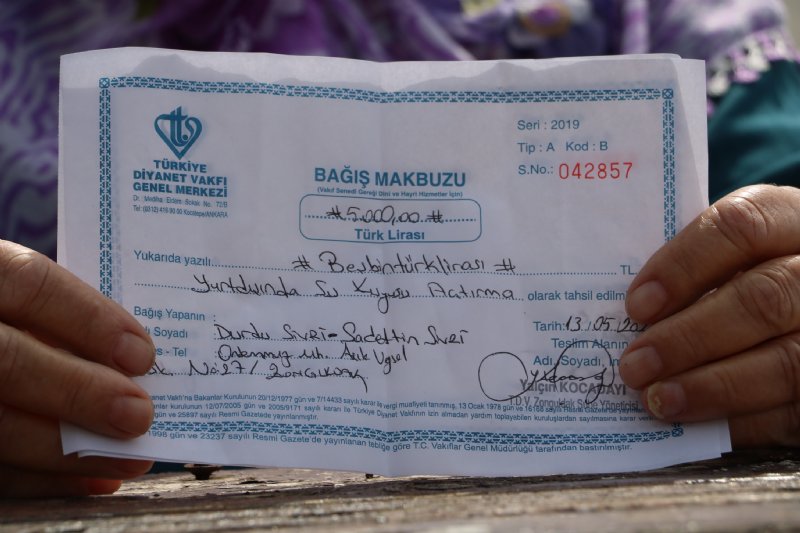 TDV
TÜRKİYE
DİYANET VAKFI
GENEL MERKEZİ
Dr. Mediha Eldem Sokak No. 72/B
Tel: (0312) 416 90 00 Kocatepe/ANKARA
BAĞIŞ MAKBUZU
(Vakıf Senedi Gereği Dini ve Hayri Hizmetler İçin)
# 5.000,00 #
Türk Lirası
Seri : 2019
Tip : A Kod : B
S.No.: 042857
Yukarıda yazılı # Beşbintürklirası # TL.
Yurtdışında Su Kuyusu Açtırma olarak tahsil edilm
Bağış Yapanın :
dı Soyadı : Durdu Sivri - Sadettin Sivri
s - Tel
No: 27/ Zonguldak
Tarih: 13.05.20
Teslim Alanın
Adı Soyadı, İm
Yalçın KOCABAY
T.D.V. Zonguldak Şube Yöneticisi
et Vakfı'na Bakanlar Kurulunun 20/12/1977 gün ve 7/14433 sayılı kararı ile vergi muafiyeti tanınmış, 13 Ocak 1978 gün ve 16168 sayılı Resmi Gazete'de yayınlan
anlar Kurulunun 12/07/2005 gün ve 2005/9171 sayılı kararı ile Türkiye Diyanet Vakfının izin almadan yardım toplayabilen kuruluşlardan sayılmasına karar veril
gün ve 25897 sayılı Resmi Gazete'de yayınlanmıştır.
1998 gün ve 23237 sayılı Resmi Gazete'de yayınlanan yönetmeliğe göre T.C. Vakıflar Genel Müdürlüğü tarafından bastırılmıştır.